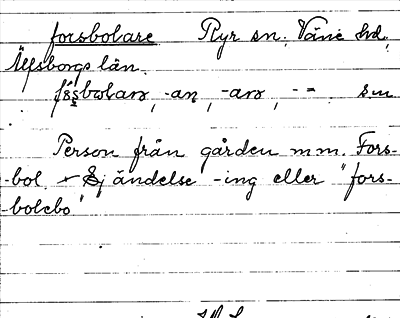 forsbolare Ryr sn; Väne hd,
Älfsborgs län.
-an, -arə, - = s.m.
Person från gården m.m. Fors-
-bol. Ej ändelse -ing eller "fors-
-bolebo"